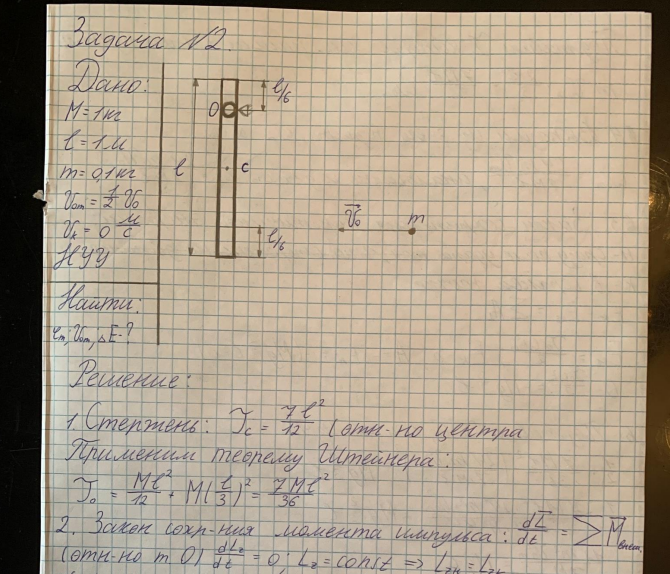 Задача №2.
Дано:
M=1кг
l=1м
m=0,1кг
Vom=1/2 V₀
Vк=0 м/с
НУУ
Найти:
Vom, ΔE-?
O
l
l/6
C
l/6
V₀
m
Решение:
1. Стержень: Jc = 7l²/12 (отн-но центра
Применим теорему Штейнера:
J₀ = Ml²/12 + M(l/3)² = 7Ml²/36
2. Закон сохр-ния момента импульса: dL/dt = ∑ M внеш.
(отн-но т О) dLz/dt = 0; Lz = const => Lzн = Lzк